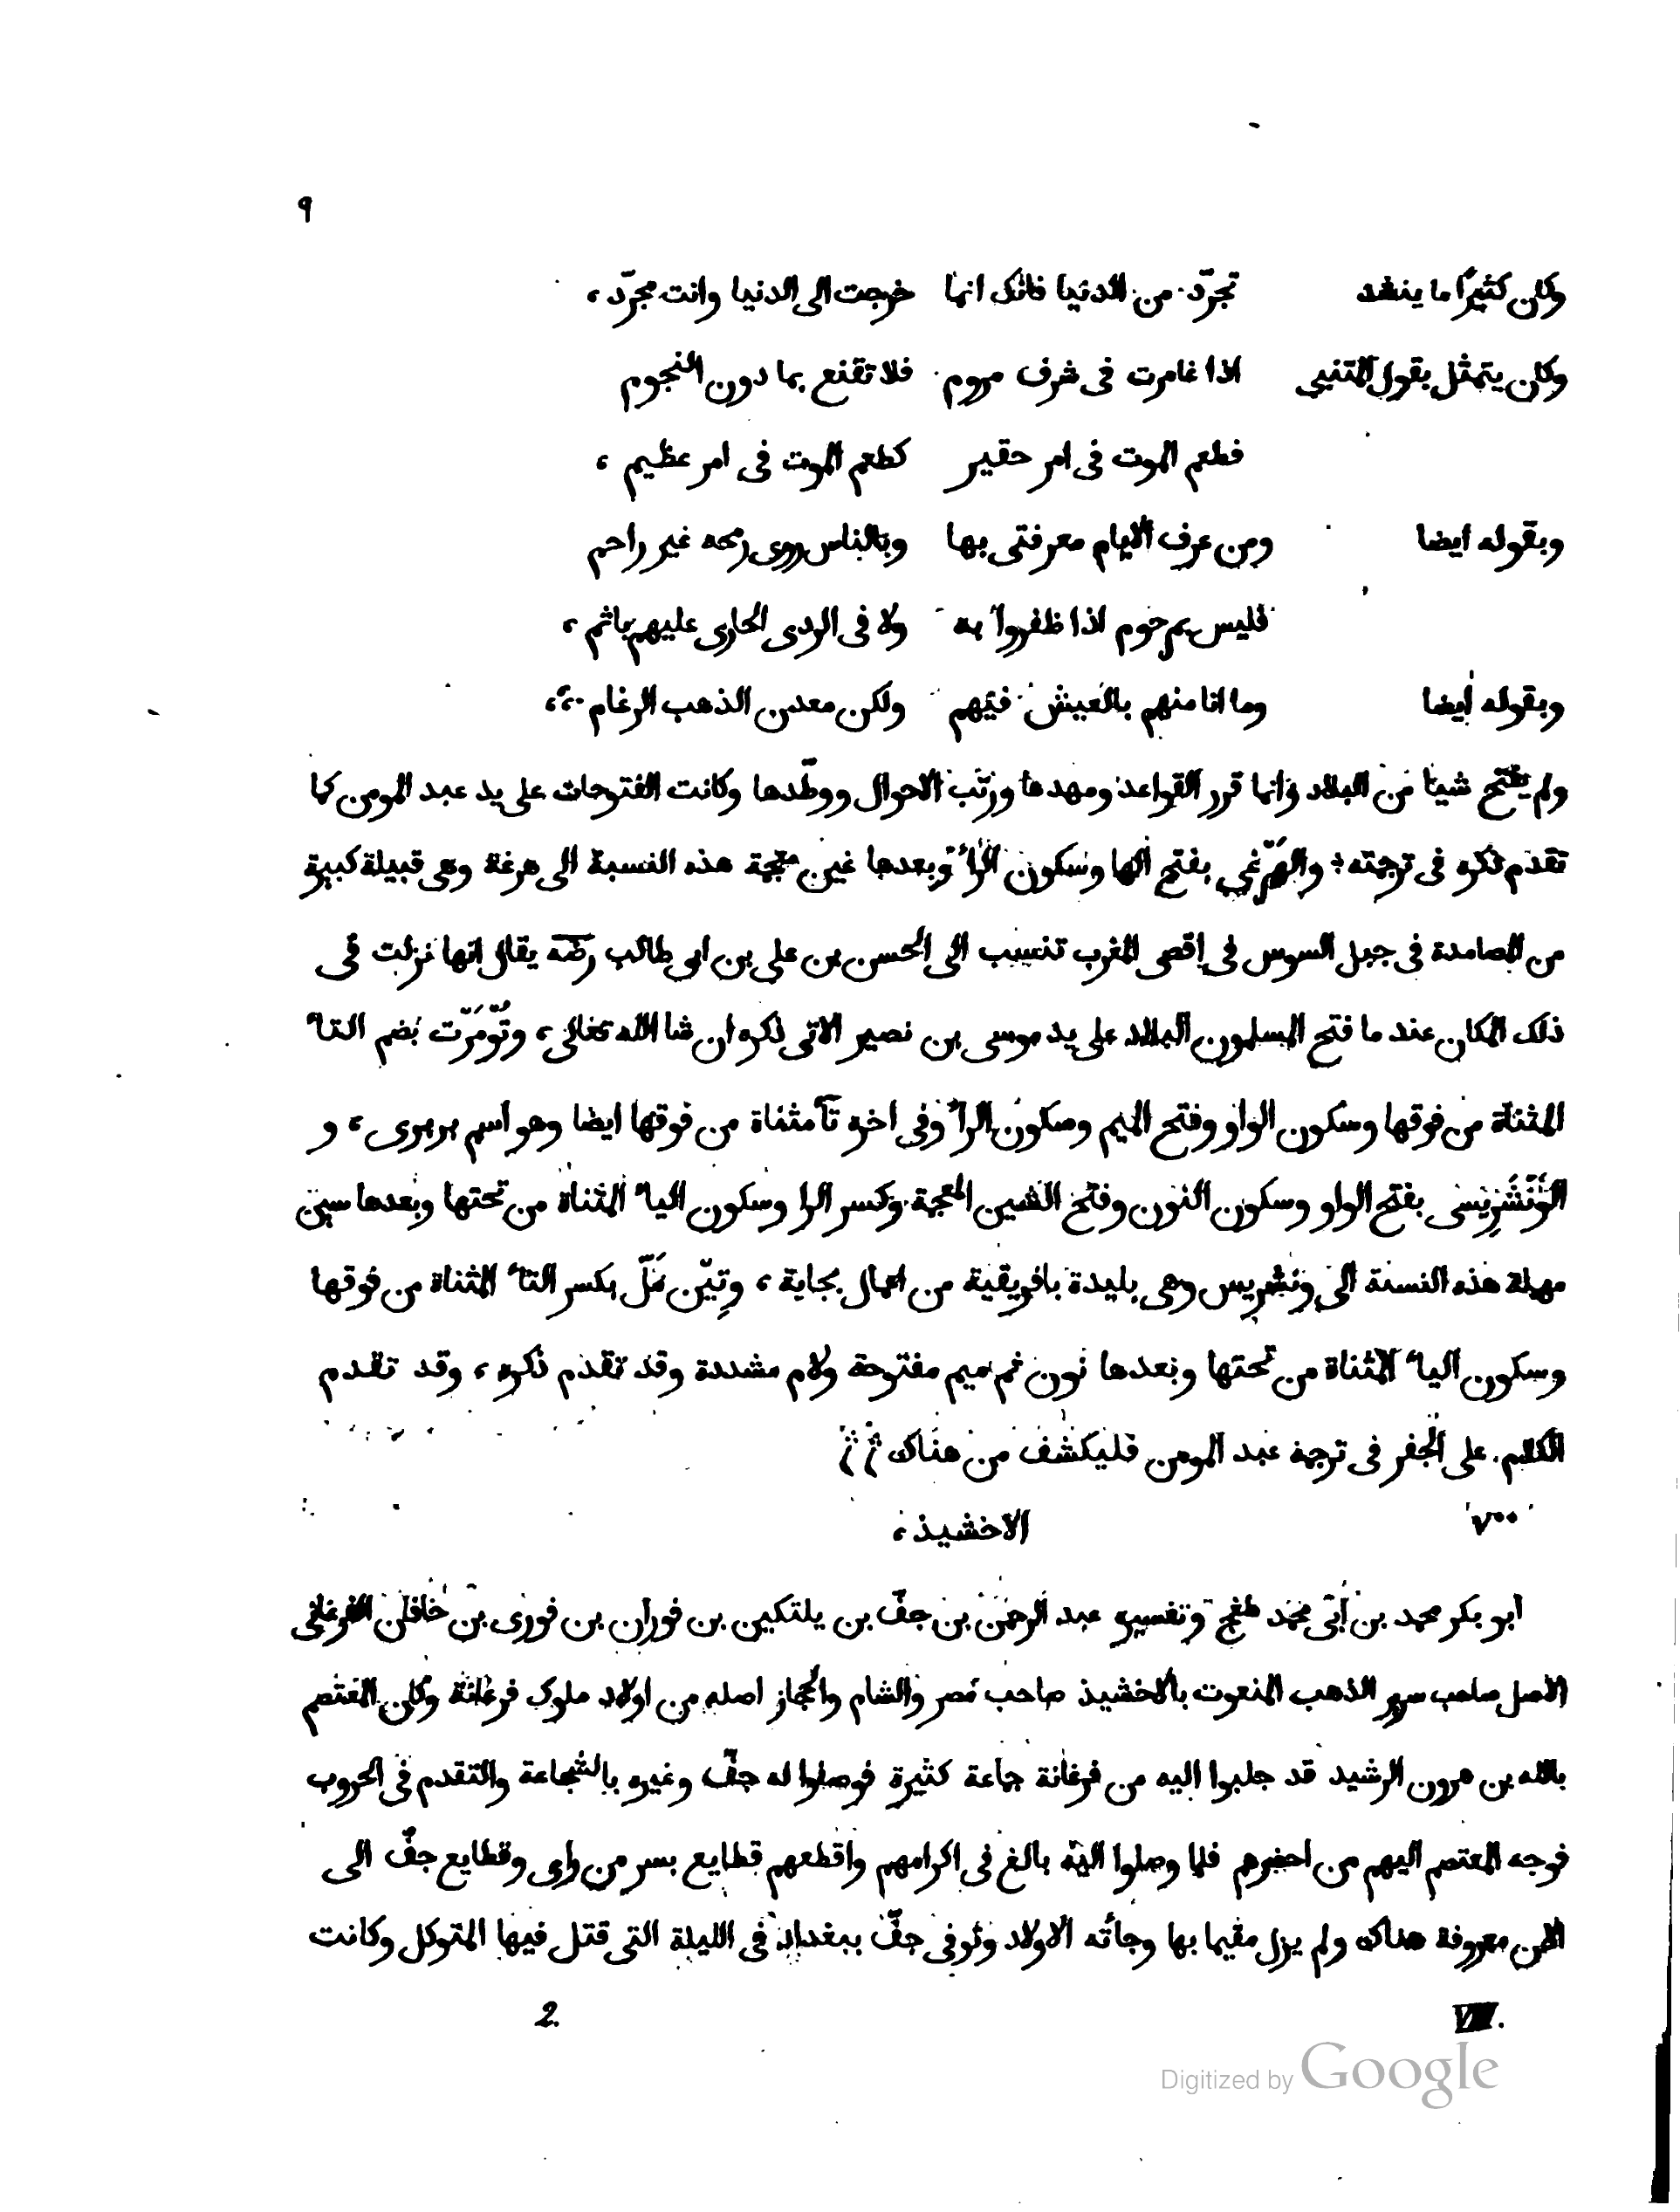 ٩
وكان كثيرًا ما ينشد تجرّد من الدنيا فانك انما خرجت الى الدنيا وانت مجرّد،
وكان يتمثل بقول المتنبى اذا غامرت فى شرف مروم فلا تقنع بما دون النجوم
فطعم الموت فى امر حقير كطعم الموت فى امر عظيم،
وبقوله ايضا ومن عرف الايام معرفتى بها وبالناس روى رمحه غير راحم
فليس بمرحوم اذا ظفروا به ولا فى الردى الجارى عليهم باثم،
وبقوله أيضا وما انا منهم بالعيش فيهم ولكن معدن الذهب الرغام،
ولم يفتح شيئا من البلاد وانما قرر القواعد ومهدها ورتّب الاحوال ووطّدها وكانت الفتوحات على يد عبد المومن كما
تقدم ذكره فى ترجمته؛ والهَرْغى بفتح الها وسكون الراء وبعدها غين معجمة هذه النسبة الى هرغة وهى قبيلة كبيرة
من المصامدة فى جبل السوس فى اقصى المغرب تنسب الى الحسن بن على بن ابى طالب رضه يقال انها نزلت فى
ذلك المكان عند ما فتح المسلمون البلاد على يد موسى بن نصير الاتى ذكره ان شا الله تعالى، وتُوْمَرْت بضم التاء
المثناة من فوقها وسكون الواو وفتح الميم وسكون الراء وفى اخره تآ مثناة من فوقها ايضا وهو اسم بربرى، و
الوَنْشَرِيسى بفتح الواو وسكون النون وفتح الشين المعجمة وكسر الرا وسكون الياء المثناة من تحتها وبعدها سين
مهملة هذه النسبة الى ونشريس وهى بليدة بافريقية من اعمال بجاية، وتِيْن مَلّ بكسر التاء المثناة من فوقها
وسكون الياء المثناة من تحتها وبعدها نون ثم ميم مفتوحة ولام مشددة وقد تقدم ذكره، وقد تقدم
الكلام على الجفر فى ترجمة عبد المومن فليكشف من هناك
٧٠٠ الاخشيذ،
ابو بكر محمد بن أبى محمد طغج وتفسيره عبد الرحمن بن جفّ بن يلتكين بن فوران بن فورى بن خاقان الفرغانى
الاصل صاحب سرير الذهب المنعوت بالاخشيذ صاحب مصر والشام والحجاز اصله من اولاد ملوك فرغانة وكان المعتصم
بالله بن هرون الرشيد قد جلبوا اليه من فرغانة جماعة كثيرة فوصلوا له جفّ وغيره بالشجاعة والتقدم فى الحروب
فوجه المعتصم اليهم من احضرهم فلما وصلوا اليه بالغ فى اكرامهم واقطعهم قطايع بسر من راى وقطايع جفّ الى
الان معروفة هناك ولم يزل مقيما بها وجأته الاولاد وتوفى جفّ ببغداد فى الليلة التى قتل فيها المتوكل وكانت
VIII. 2.
Digitized by Google